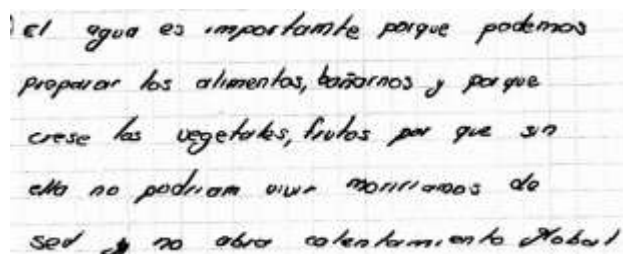 el agua es importamte porque podemos
preparar los alimentos, bañarnos y porque
crese los vegetales, frutos por que sin
ella no podriam vivir moririamos de
sed y no abra calentamiento Global